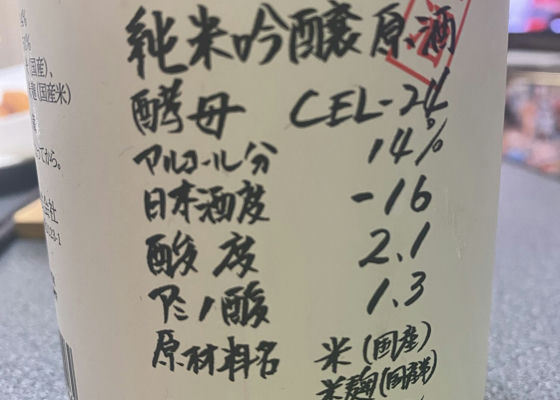 純米吟醸原酒
酵母 CEL-24
アルコール分 14%
日本酒度 -16
酸度 2.1
アミノ酸 1.3
原材料名 米(国産)
米麹(国産米)
(国産)、
麹(国産米)
てから。
会社